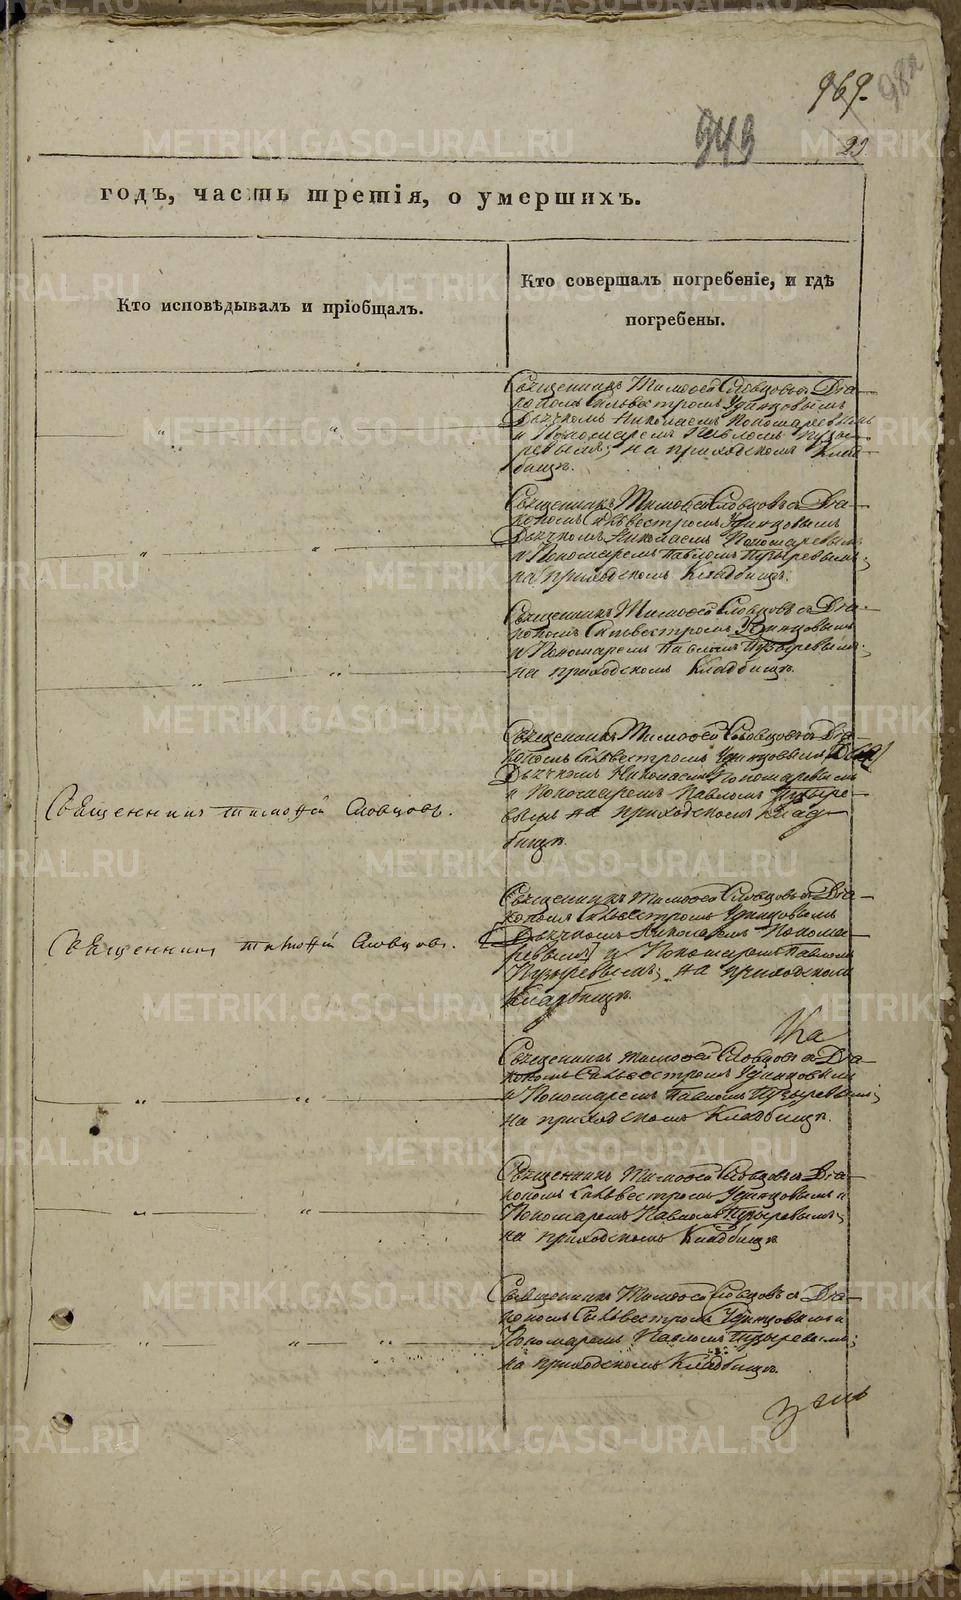 969.
98л
943
23
годъ, часть третія, о умершихъ.
Кто исповѣдывалъ и пріобщалъ.
Кто совершалъ погребеніе, и гдѣ
погребены.
Священникъ Тимоѳей Словцовъ съ Діа-
кономъ Сильвестромъ Удинцовымъ
Дьячкомъ Николаемъ Пономаревымъ
и Пономаремъ Павломъ Пузы-
ревымъ; на приходскомъ Клад-
бищѣ.
Священникъ Тимоѳей Словцовъ съ Діа-
кономъ Сильвестромъ Удинцовымъ
Дьячкомъ Николаемъ Пономаревымъ
и Пономаремъ Павломъ Пузыревымъ;
на приходскомъ Кладбищѣ.
Священникъ Тимоѳей Словцовъ съ Діа-
кономъ Сильвестромъ Удинцовымъ
и Пономаремъ Павломъ Пузыревымъ;
на приходскомъ Кладбищѣ.
Священникъ Тимоѳей Словцовъ.
Священникъ Тимоѳей Словцовъ съ Діа-
кономъ Сильвестромъ Удинцовымъ
Дьячкомъ Николаемъ Пономаревымъ
и Пономаремъ Павломъ Пузыре-
вымъ на приходскомъ Клад-
бищѣ.
Священникъ Тимоѳей Словцовъ.
Священникъ Тимоѳей Словцовъ съ Діа-
кономъ Сильвестромъ Удинцовымъ
[Дьячкомъ Николаемъ Понома-
ревымъ] и Пономаремъ Павломъ
Пузыревымъ; на приходскомъ
Кладбищѣ.
Священникъ Тимоѳей Словцовъ съ Діа-
кономъ Сильвестромъ Удинцовымъ
и Пономаремъ Павломъ Пузыревымъ;
на приходскомъ Кладбищѣ.
Священникъ Тимоѳей Словцовъ съ Діа-
кономъ Сильвестромъ Удинцовымъ и
Пономаремъ Павломъ Пузыревымъ;
на приходскомъ Кладбищѣ.
Священникъ Тимоѳей Словцовъ съ Діа-
кономъ Сильвестромъ Удинцовымъ и
Пономаремъ Павломъ Пузыревымъ;
на приходскомъ Кладбищѣ.
METRIKI.GASO-URAL.RU